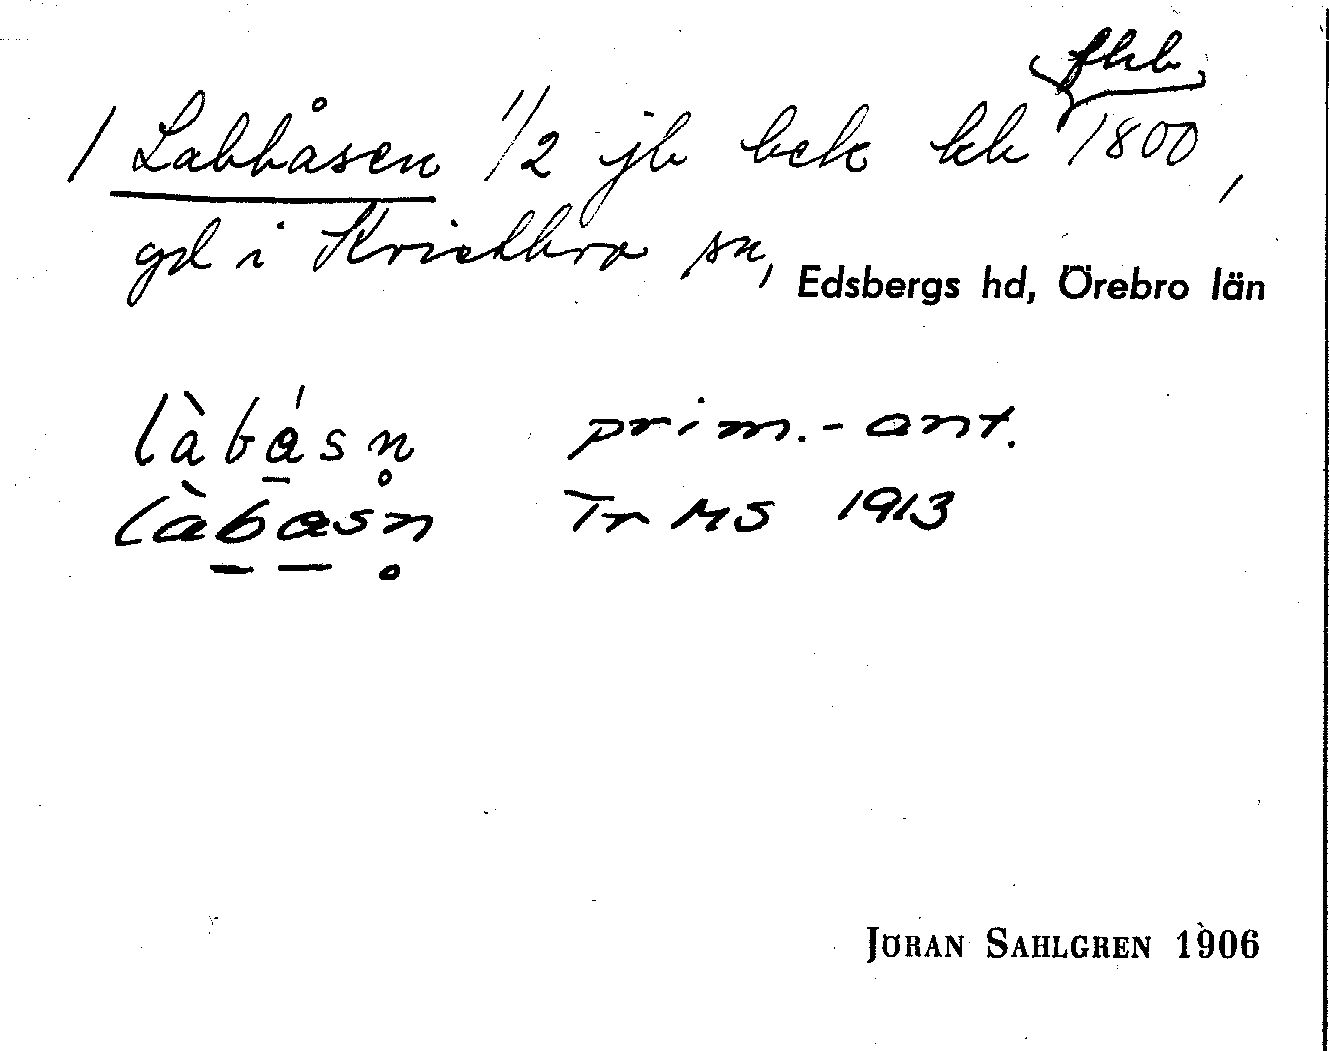 fkb
/ Labbåsen 1/2 jb bek kk 1800,
gd i Kvistbro sn, Edsbergs hd, Örebro län
làbási̥n prim.-ant.
làbasn̥ Tr MS 1913
JÖRAN SAHLGREN 1906